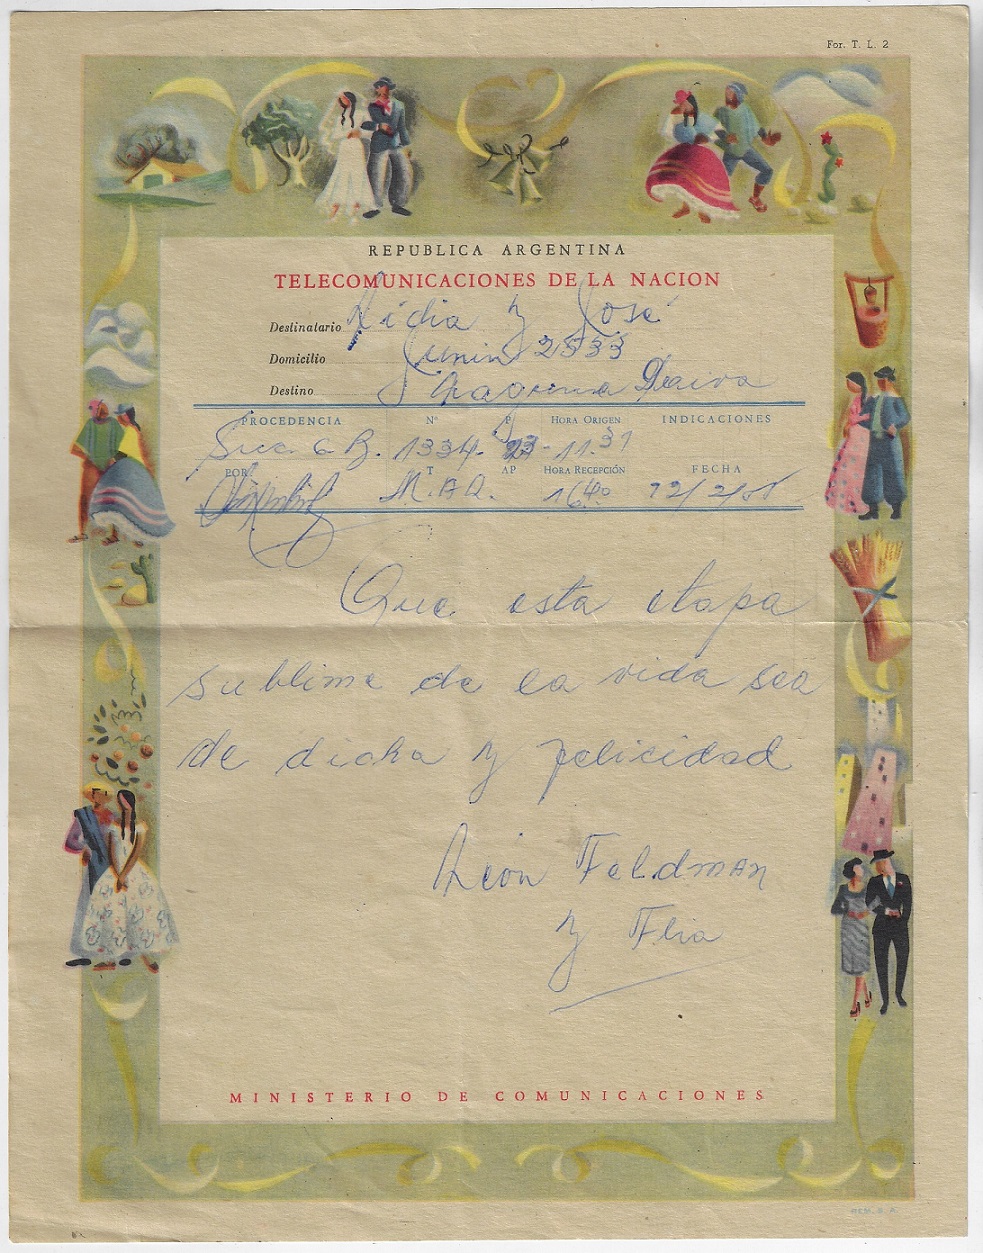 For. T. L. 2
REPUBLICA ARGENTINA
TELECOMUNICACIONES DE LA NACION
Destinatario Lidia y José
Domicilio Junin 2533
Destino
PROCEDENCIA Nº P HORA ORIGEN INDICACIONES
Suc. 6 B. 1334 - 23 - 11.31
POR T AP HORA RECEPCIÓN FECHA
16.40
Que esta etapa
sublime de la vida sea
de dicha y felicidad
León Feldman
y Flia
MINISTERIO DE COMUNICACIONES